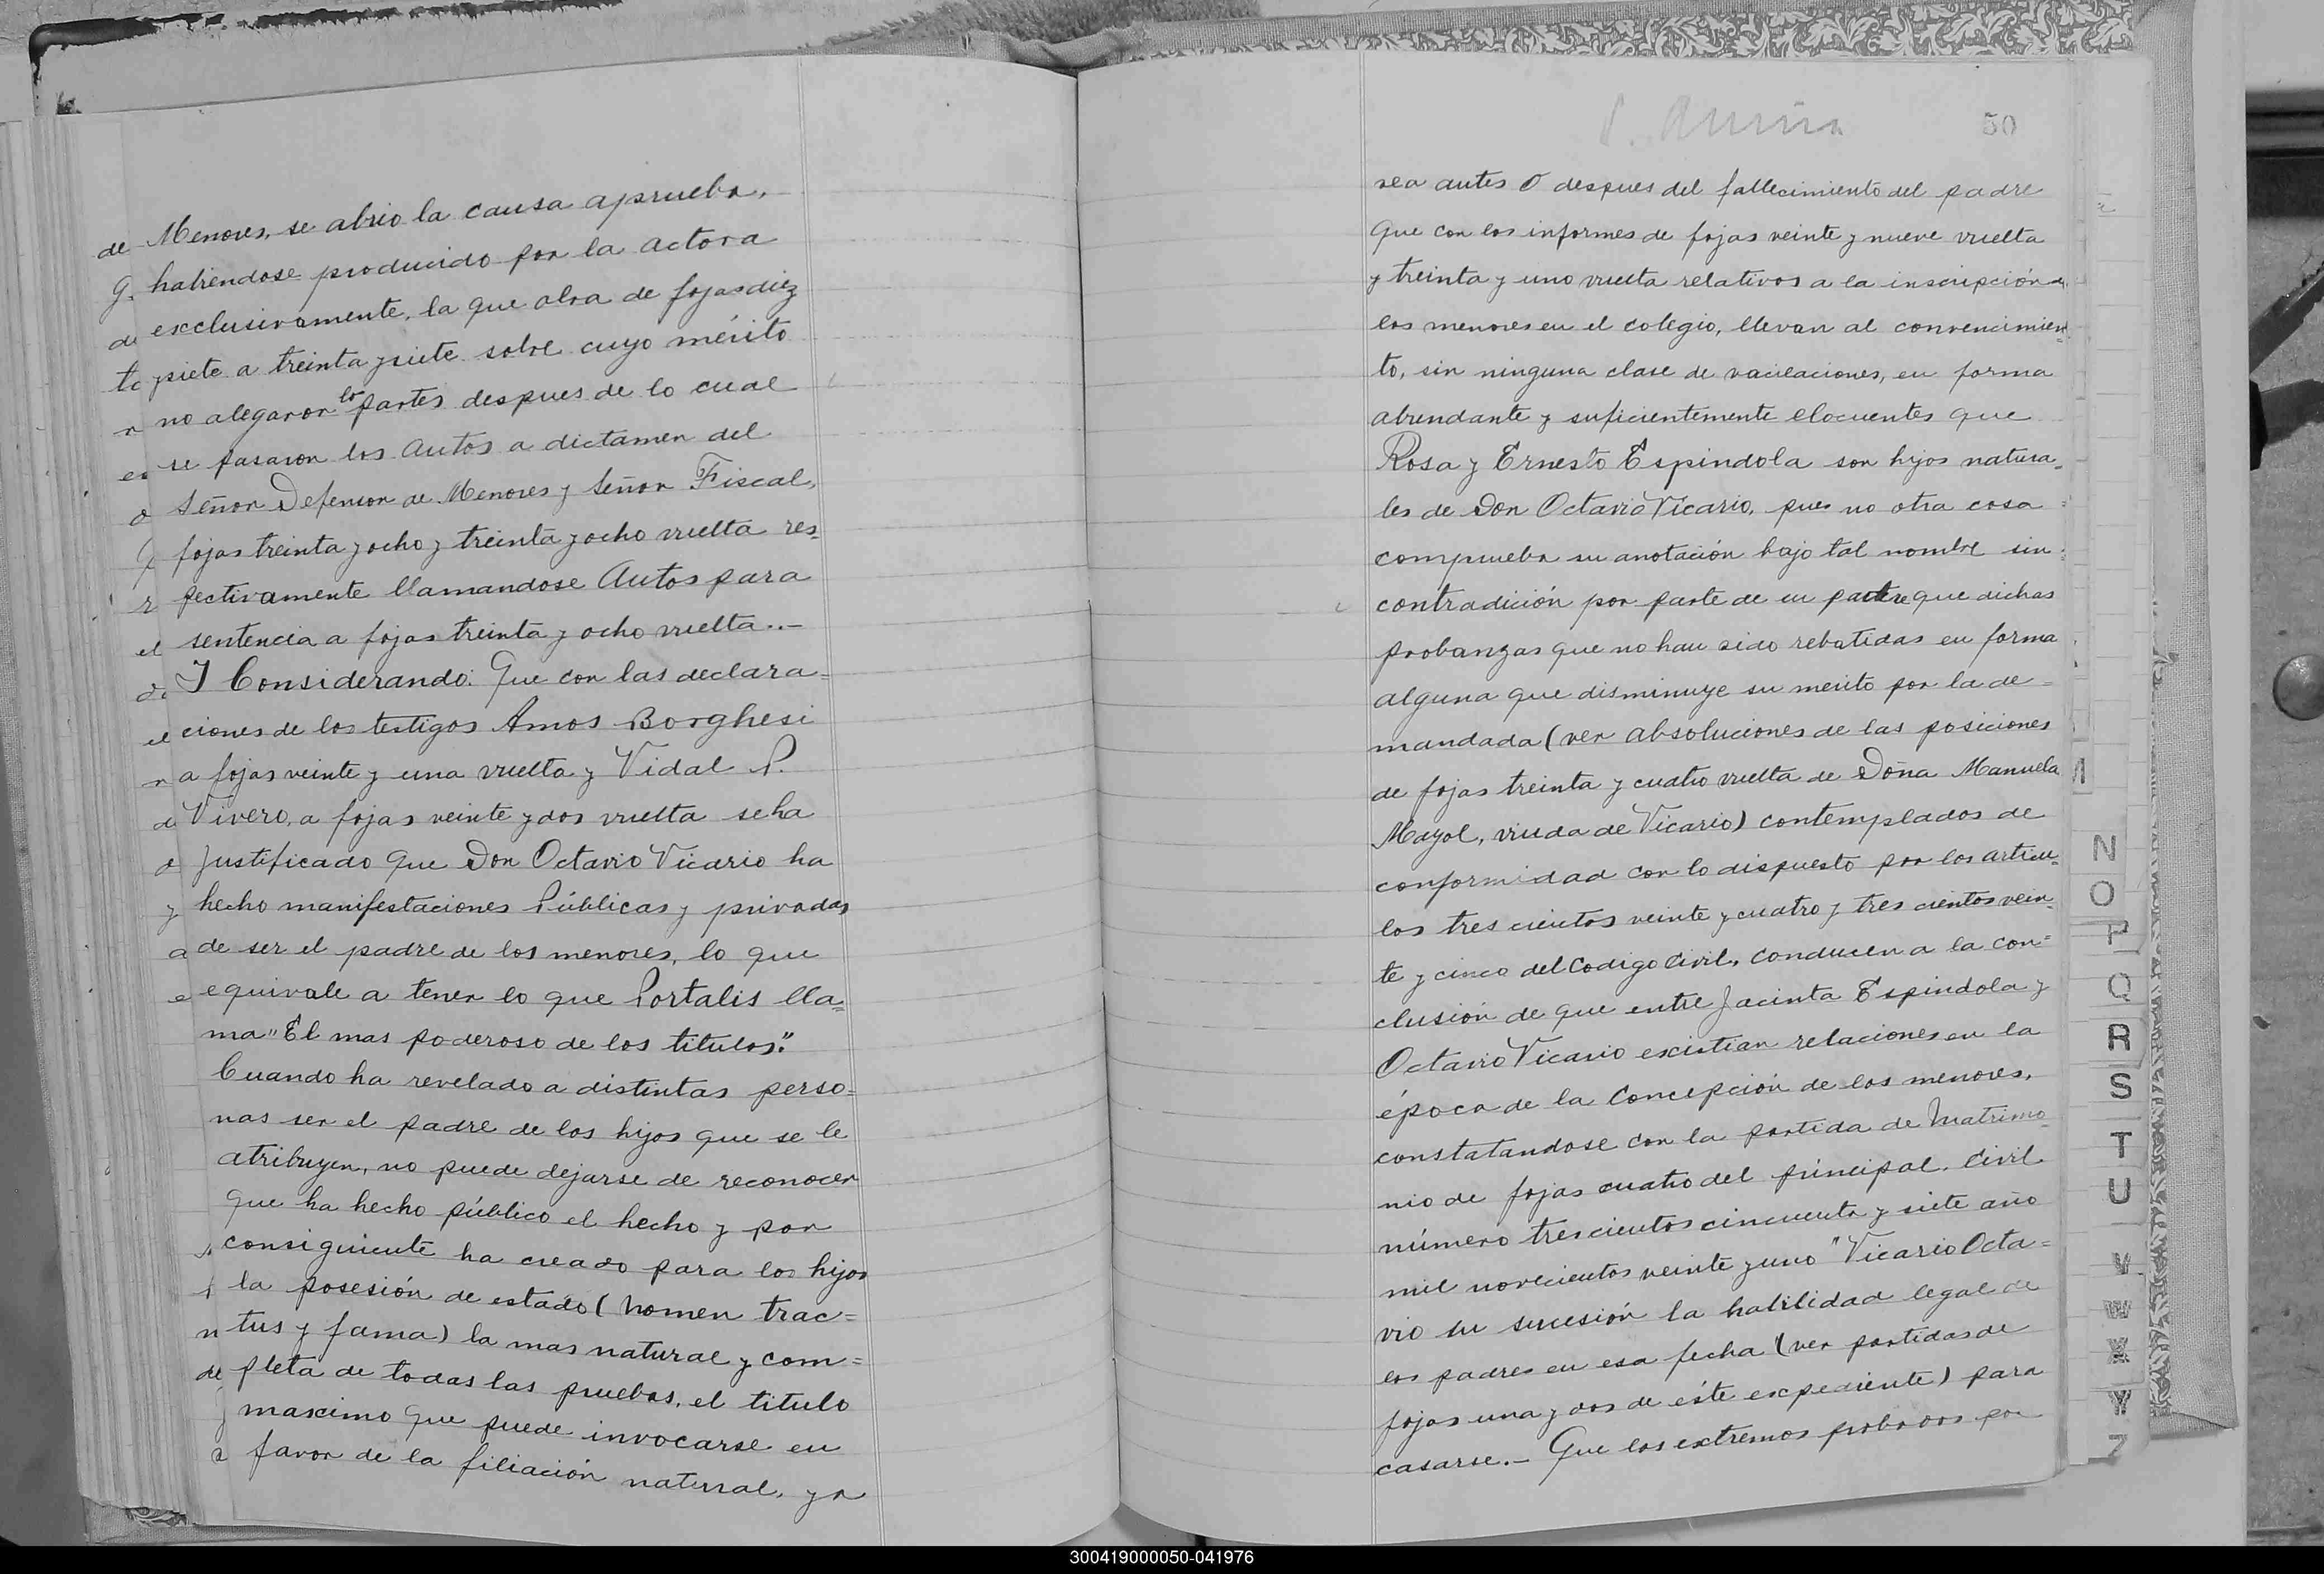 Menores, se abrio la causa aprueba,
habiendose producido por la actora
exclusivamente, la que obra de fojas diez
y siete a treinta y siete sobre cuyo mérito
no alegaron lo partes despues de lo cual
se pasaron los Autos a dictamen del
Señor Defensor de Menores y Señor Fiscal,
fojas treinta y ocho y treinta y ocho vuelta res=
pectivamente llamandose Autos para
sentencia a fojas treinta y ocho vuelta..-
Y Considerando: Que con las declara=
ciones de los testigos Amos Borghesi
a fojas veinte y una vuelta y Vidal P.
Vivero, a fojas veinte y dos vuelta se ha
Justificado que Don Octavio Vicario ha
hecho manifestaciones Públicas y privadas
de ser el padre de los menores, lo que
equivale a tener lo que Portalis lla=
ma "El mas poderoso de los titulos".
Cuando ha revelado a distintas perso=
nas ser el padre de los hijos que se le
atribuyen, no puede dejarse de reconocer
que ha hecho público el hecho y por
consiguiente ha creado para los hijos
la posesión de estado ( nomen trac=
tus y fama) la mas natural y com=
pleta de todas las pruebas, el titulo
maximo que puede invocarse en
favor de la filiación natural, ya
50
sea antes o despues del fallecimiento del padre
que con los informes de fojas veinte y nueve vuelta
y treinta y uno vuelta relativos a la inscripción de
los menores en el colegio, llevan al convencimien=
to, sin ninguna clase de vacilaciones, en forma
abundante y suficientemente elocuentes que
Rosa y Ernesto Espindola son hijos natura=
les de Don Octavio Vicario, pues no otra cosa
comprueba su anotación bajo tal nombre sin
contradición por parte de su padre que dichas
probanzas que no han sido rebatidas en forma
alguna que disminuye su merito por la de=
mandada (ver absoluciones de las posiciones
de fojas treinta y cuatro vuelta de Doña Manuela
Mayol, viuda de Vicario) contemplados de
conformidad con lo dispuesto por los articu=
los tres cientos veinte y cuatro y tres cientos vein=
te y cinco del Codigo Civil, conducen a la con=
clusión de que entre Jacinta Espindola y
Octavio Vicario existian relaciones en la
época de la Concepción de los menores,
constatandose con la partida de Matrimo=
nio de fojas cuatro del principal. Civil
número trescientos cincuenta y siete año
mil novecientos veinte y uno "Vicario Octa=
vio su sucesión la habilidad legal de
los padres en esa fecha (ver partidas de
fojas una y dos de éste expediente) para
casarse.- Que los extremos probados por
N
O
P
Q
R
S
T
U
V
W
X
Y
Z
300419000050-041976